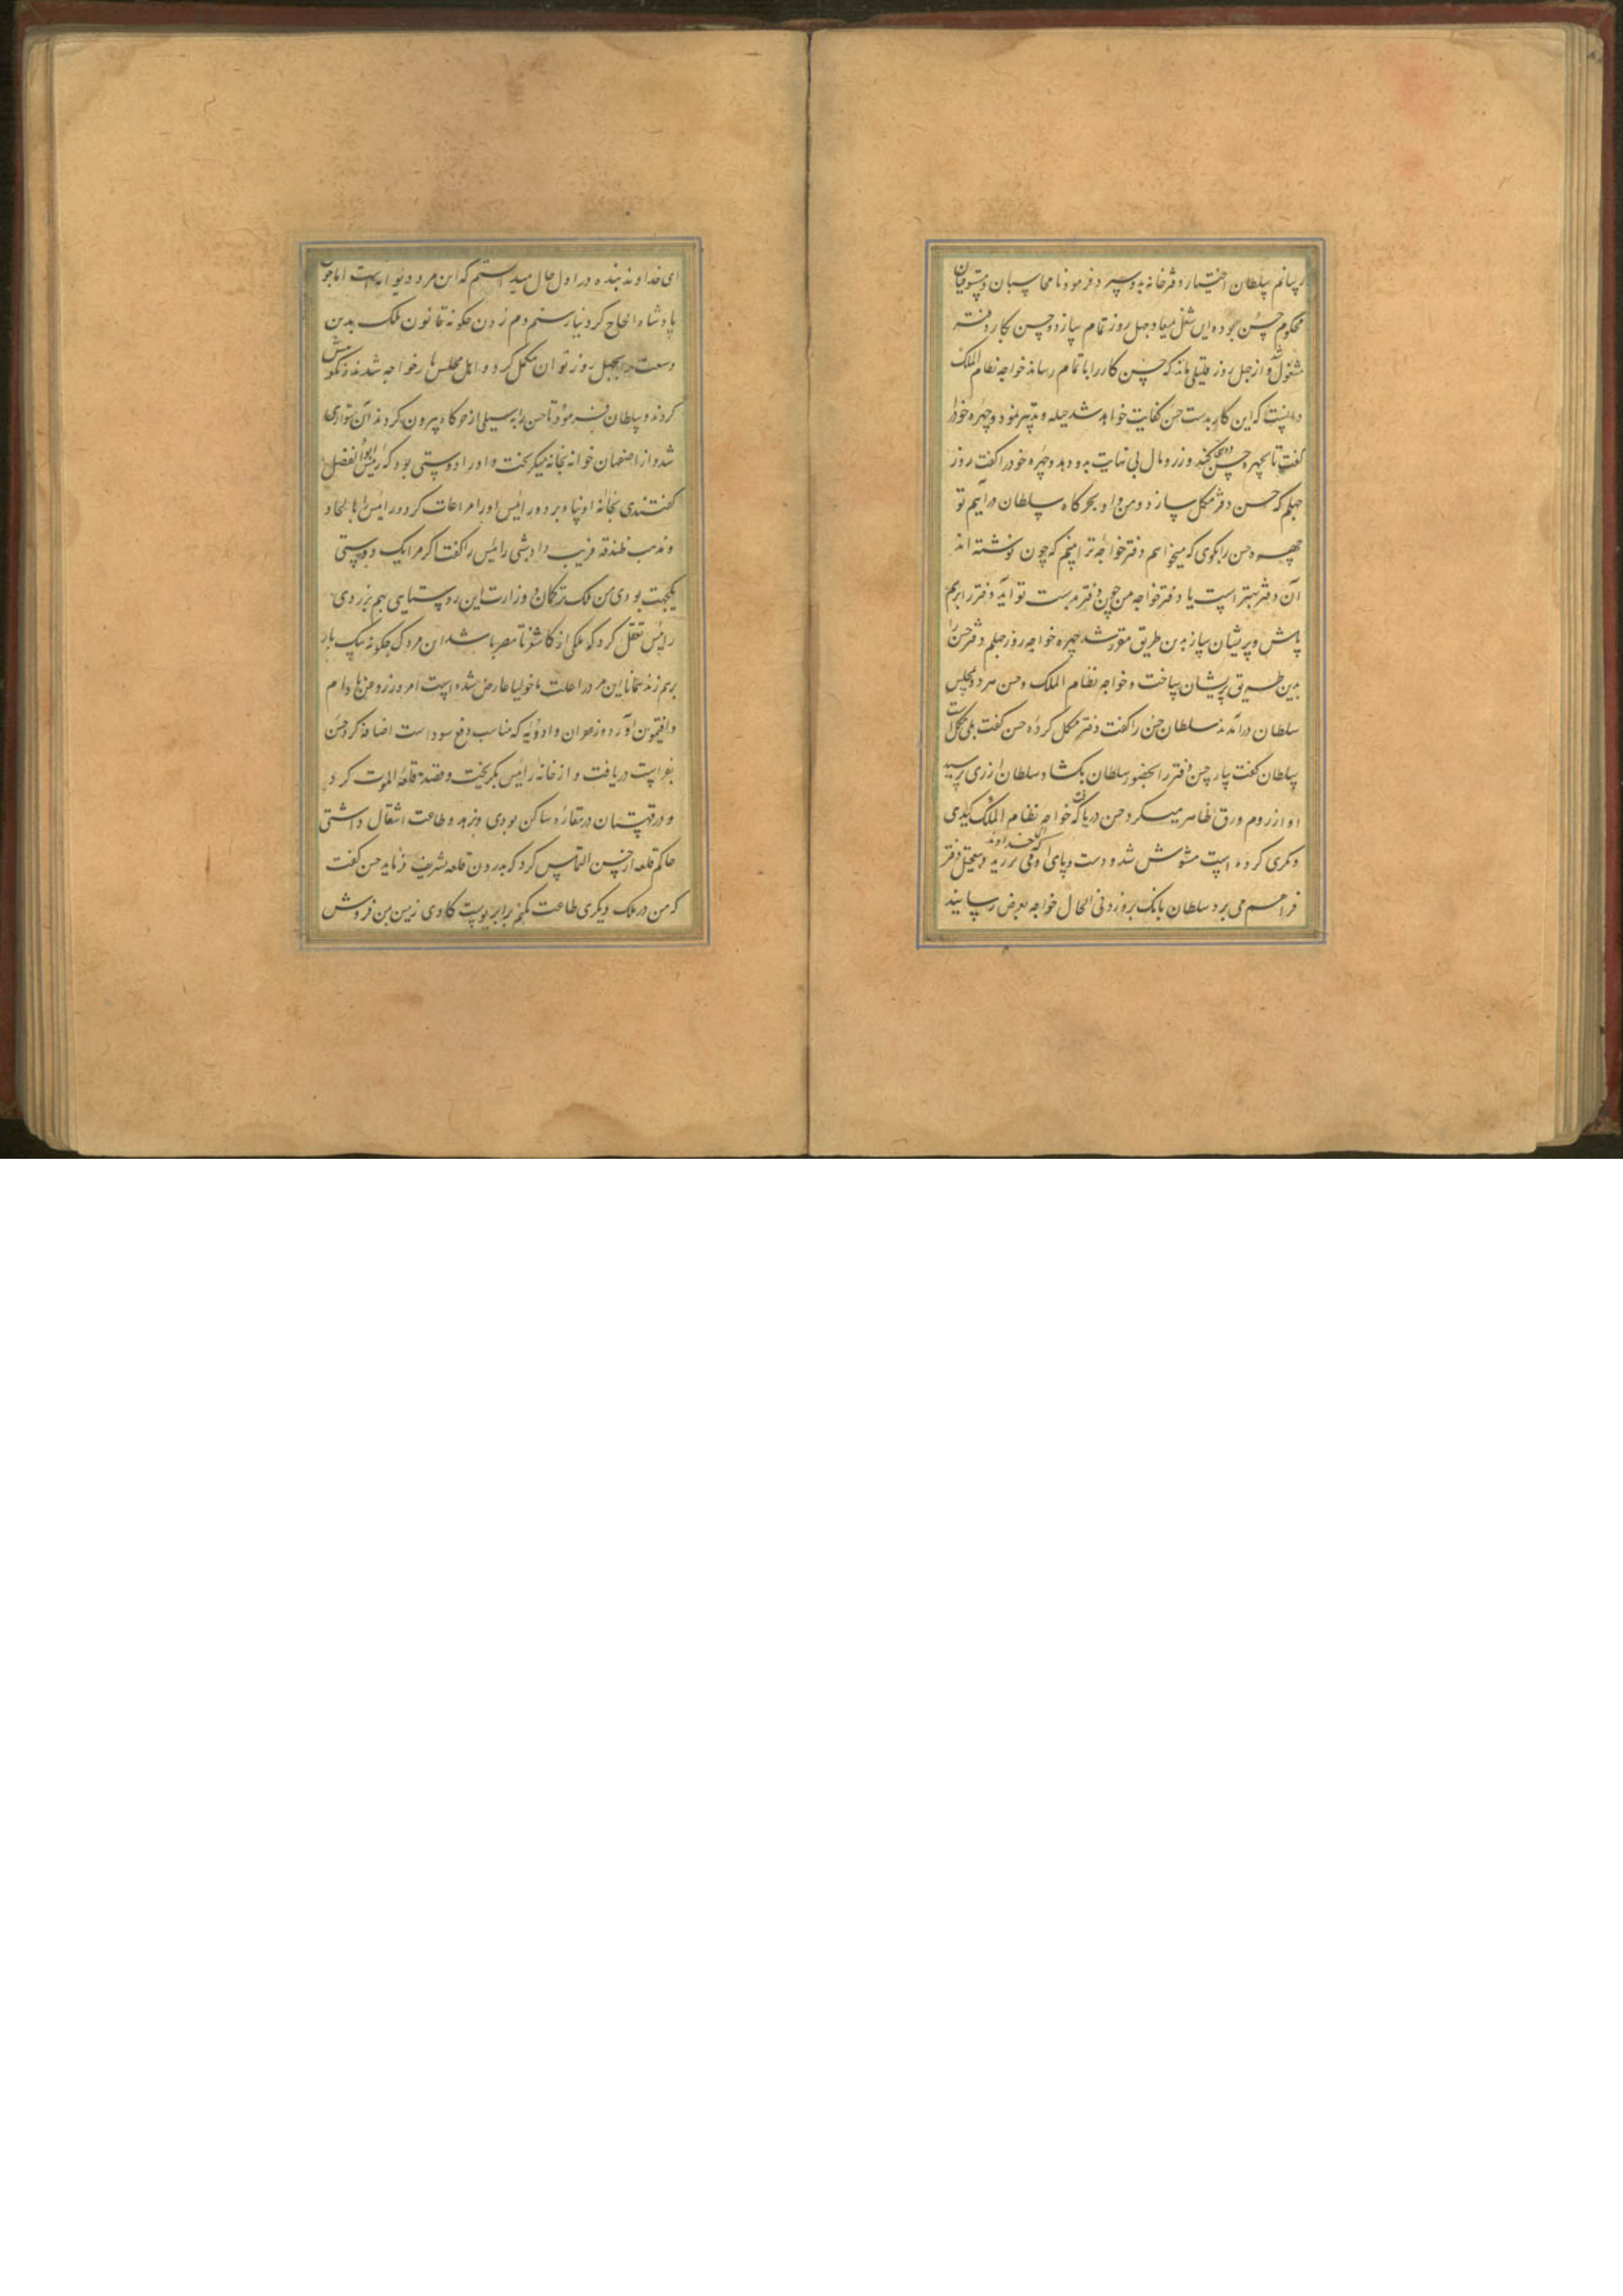 رسانم سلطان اختیار دفترخانه بدو سپرد و فرمود تا محاسبان و مستوفیان
محکوم حسن بوده این شغل بمیعاد چهل روز تمام سازد و حسن بکار دفتر
مشغول شد و از چهل روز قلیلی ماند که حسن کار را باتمام رساند خواجه نظام الملک
دانست که این کار بدست حسن کفایت خواهد شد حیله و تدبیر نمود و چهره خود را
گفت تا بچهره حسن دوستی کند و زر و مال بی نهایت بدو دهد و چهره خود را گفت روز
چهلم که حسن دفتر مکمل سازد و من و او بحرکاه سلطان درآییم تو
چهره حسن را بکوی که میخواهم دفتر خواجه ترا بینم که چون نوشته اند
آن دفتر بهتر است یا دفتر خواجه من چون دفتر بدست تو آید دفتر را برهم
پاش و پریشان ساز بدین طریق مقرر شد چهره خواجه روز چهلم دفتر حسن را
بدین طریق پریشان ساخت و خواجه نظام الملک و حسن هر دو بمجلس
سلطان درآمدند سلطان حسن را گفت دفتر مکمل کرده حسن گفت بلی مکمل است
سلطان گفت بیار حسن دفتر را بحضور سلطان بکشاد سلطان از ری پرسید
او از روم ورق ظاهر میکرد حسن دریافت که خواجه نظام الملک کیدی
و مکری کرده است مشوش شد و دست و پای او می لرزید و بتعجیل دفتر
فراهم می برد سلطان بانک برو زد فی الحال خواجه بعرض رسانید که ای خداوند
ای خداوند بنده در اول حال میدانستم که این مرد دیوانه است اما چون
پادشاه الحاح کرد نیارستم دم زدن چکونه قانون ملک بدین
وسعت را بچهل روز توان مکمل کرد و اهل مجلس یار خواجه شدند و نکوهش
کردند و سلطان فرمود تا حسن را بسیلی از حرکاه بیرون کردند آن متواری
شد و از اصفهان خانه بخانه میکریخت و او را دوستی بود که رئیس ابوالفضل
گفتندی بخانه او پناه برد و رئیس او را مراعات کرد و رئیس را بالحاد
و مذهب فریب دادبشی رئیس را گفت اگر مرا یک دوستی
یکجهت بودی من ملک ترکان و وزارت این روستایی بهم برزدمی
رئیس تعقل کرد که ملکی از کاشغر تا مصر باشد این مردک چکونه بیک بار
برهم زند همانا این مرد را علت ماخولیا عارض شده است امروز روغن بادام
و افتیمون آورد و زعفران و ادویه که مناسب دفع سوداست اضافه کرد حسن
بفراست دریافت و از خانه رئیس بکریخت و قصد قلعه الموت کرد
و در قهستان در مغاره ساکن بودی و بزهد و طاعت اشتغال داشتی
حاکم قلعه از حسن التماس کرد که بدرون قلعه تشریف فرماید حسن گفت
که من در ملک دیگری طاعت نکنم برابر پوست کاوی زمین بمن فروش